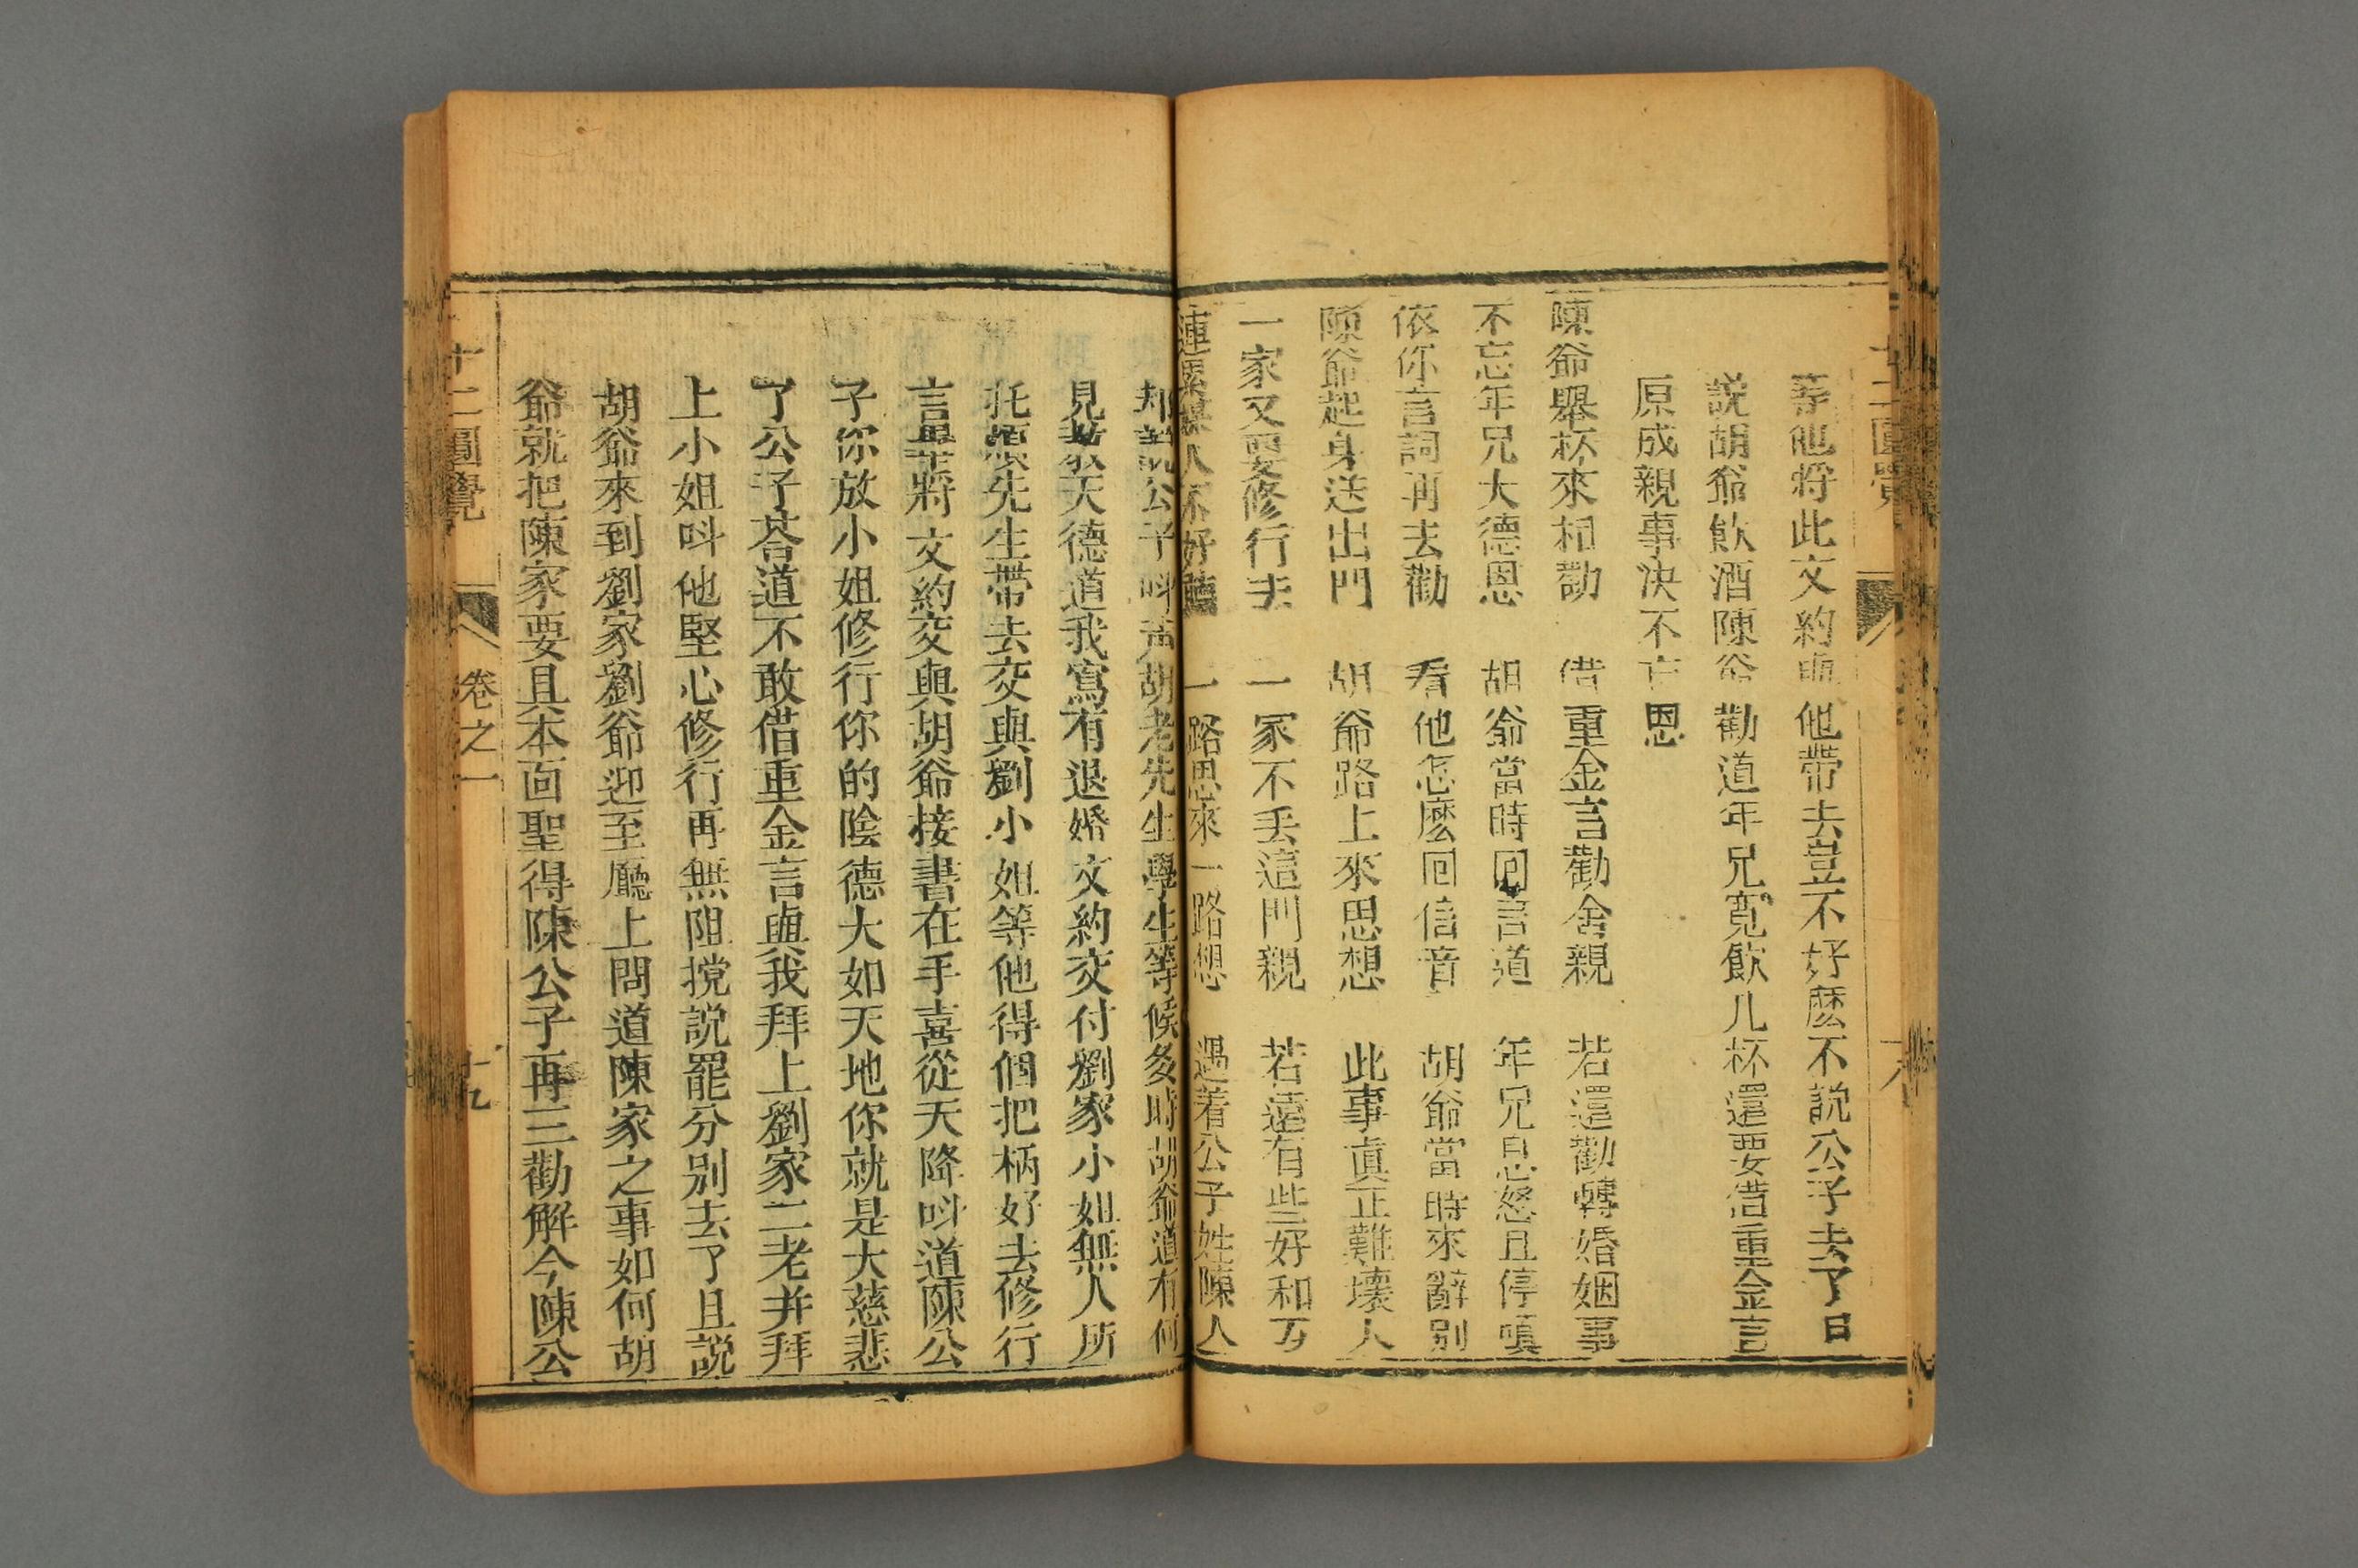 等他將此文約與他帶去豈不好麽不說公子去了且
說胡爺飲酒陳爺勸道年兄寬飲几杯還要借重金言
原成親事決不忘恩
陳爺舉杯來相勸 借重金言勸舍親 若還勸轉婚姻事
不忘年兄大德恩 胡爺當時回言道 年兄息怒且停嗔
依你言詞再去勸 看他怎麽回信音 胡爺當時來辭別
陳爺起身送出門 胡爺路上來思想 此事真正難壞人
一家又要修行去 一家不丟這門親 若還有些好和歹
連累媒人不好聽 一路思來一路想 遇着公子姓陳人
却說公子呌声胡老先生學生等候多時胡爺道有何
見教公子道我寫有退婚文約交付劉家小姐無人所
托煩先生帶去交與劉小姐等他得個把柄好去修行
言畢將文約交與胡爺接書在手喜從天降呌道陳公
子你放小姐修行你的陰德大如天地你就是大慈悲
了公子荅道不敢借重金言與我拜上劉家二老并拜
上小姐呌他堅心修行再無阻攩説罷分別去了且説
胡爺來到劉家劉爺迎至廳上問道陳家之事如何胡
爺就把陳家要具本面聖得陳公子再三勸解今陳公
十二圓覺 卷之一 十九